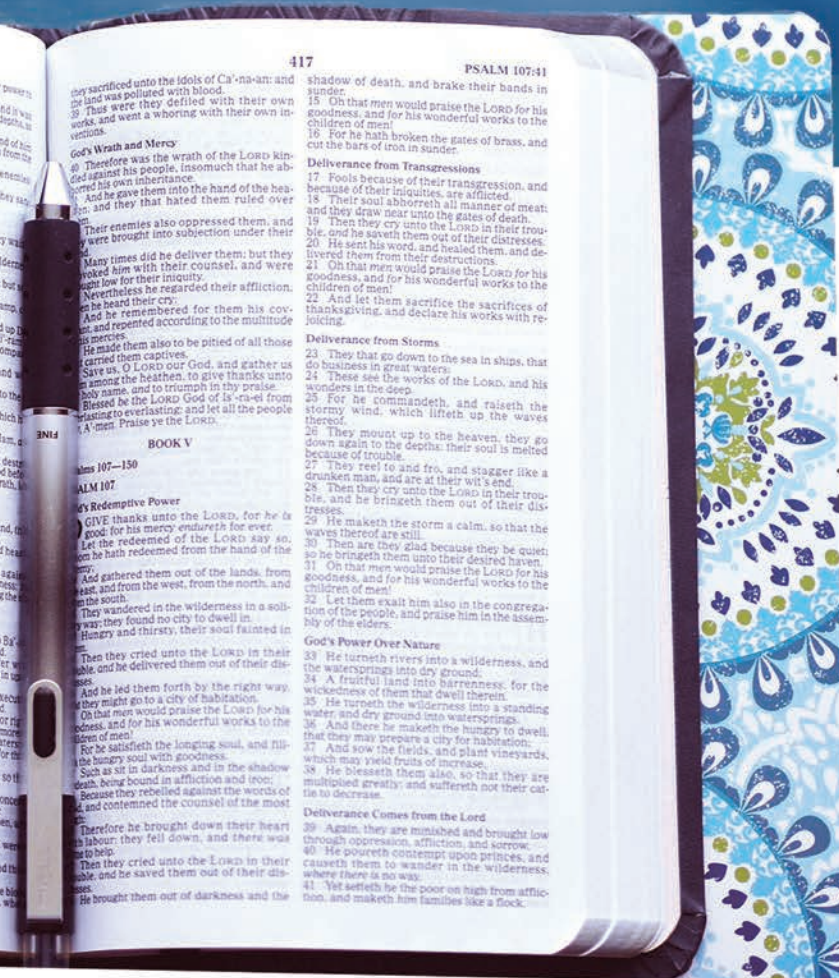 417
PSALM 107:41
they sacrificed unto the idols of Ca'-na-an: and
the land was polluted with blood.
39 Thus were they defiled with their own
works, and went a whoring with their own in-
ventions.
God's Wrath and Mercy
40 Therefore was the wrath of the LORD kin-
dled against his people, insomuch that he ab-
horred his own inheritance.
And he gave them into the hand of the hea-
and they that hated them ruled over
Their enemies also oppressed them, and
were brought into subjection under their
Many times did he deliver them; but they
him with their counsel, and were
low for their iniquity.
Nevertheless he regarded their affliction,
he heard their cry:
And he remembered for them his cov-
and repented according to the multitude
mercies.
He made them also to be pitied of all those
carried them captives.
Save us, O LORD our God, and gather us
among the heathen, to give thanks unto
holy name, and to triumph in thy praise.
Blessed be the LORD God of Is'-ra-el from
to everlasting: and let all the people
A'-men. Praise ye the LORD.
BOOK V
107—150
107
Redemptive Power
GIVE thanks unto the LORD, for he is
good: for his mercy endureth for ever.
Let the redeemed of the LORD say so,
he hath redeemed from the hand of the
And gathered them out of the lands, from
east, and from the west, from the north, and
the south.
They wandered in the wilderness in a soli-
way; they found no city to dwell in.
Hungry and thirsty, their soul fainted in
Then they cried unto the LORD in their
and he delivered them out of their dis-
And he led them forth by the right way,
they might go to a city of habitation.
Oh that men would praise the LORD for his
and for his wonderful works to the
of men!
For he satisfieth the longing soul, and fill-
the hungry soul with goodness.
Such as sit in darkness and in the shadow
death, being bound in affliction and iron;
Because they rebelled against the words of
and contemned the counsel of the most
Therefore he brought down their heart
labour; they fell down, and there was
to help.
Then they cried unto the LORD in their
and he saved them out of their dis-
He brought them out of darkness and the
shadow of death, and brake their bands in
sunder.
15 Oh that men would praise the LORD for his
goodness, and for his wonderful works to the
children of men!
16 For he hath broken the gates of brass, and
cut the bars of iron in sunder.
Deliverance from Transgressions
17 Fools because of their transgression, and
because of their iniquities, are afflicted.
18 Their soul abhorreth all manner of meat;
and they draw near unto the gates of death.
19 Then they cry unto the LORD in their trou-
ble, and he saveth them out of their distresses.
20 He sent his word, and healed them, and de-
livered them from their destructions.
21 Oh that men would praise the LORD for his
goodness, and for his wonderful works to the
children of men!
22 And let them sacrifice the sacrifices of
thanksgiving, and declare his works with re-
joicing.
Deliverance from Storms
23 They that go down to the sea in ships, that
do business in great waters;
24 These see the works of the LORD, and his
wonders in the deep.
25 For he commandeth, and raiseth the
stormy wind, which lifteth up the waves
thereof.
26 They mount up to the heaven, they go
down again to the depths: their soul is melted
because of trouble.
27 They reel to and fro, and stagger like a
drunken man, and are at their wit's end.
28 Then they cry unto the LORD in their trou-
ble, and he bringeth them out of their dis-
tresses.
29 He maketh the storm a calm, so that the
waves thereof are still.
30 Then are they glad because they be quiet;
so he bringeth them unto their desired haven.
31 Oh that men would praise the LORD for his
goodness, and for his wonderful works to the
children of men!
32 Let them exalt him also in the congrega-
tion of the people, and praise him in the assem-
bly of the elders.
God's Power Over Nature
33 He turneth rivers into a wilderness, and
the watersprings into dry ground;
34 A fruitful land into barrenness, for the
wickedness of them that dwell therein.
35 He turneth the wilderness into a standing
water, and dry ground into watersprings.
36 And there he maketh the hungry to dwell,
that they may prepare a city for habitation;
37 And sow the fields, and plant vineyards,
which may yield fruits of increase.
38 He blesseth them also, so that they are
multiplied greatly; and suffereth not their cat-
tle to decrease.
Deliverance Comes from the Lord
39 Again, they are minished and brought low
through oppression, affliction, and sorrow.
40 He poureth contempt upon princes, and
causeth them to wander in the wilderness,
where there is no way.
41 Yet setteth he the poor on high from afflic-
tion, and maketh him families like a flock.
FINE